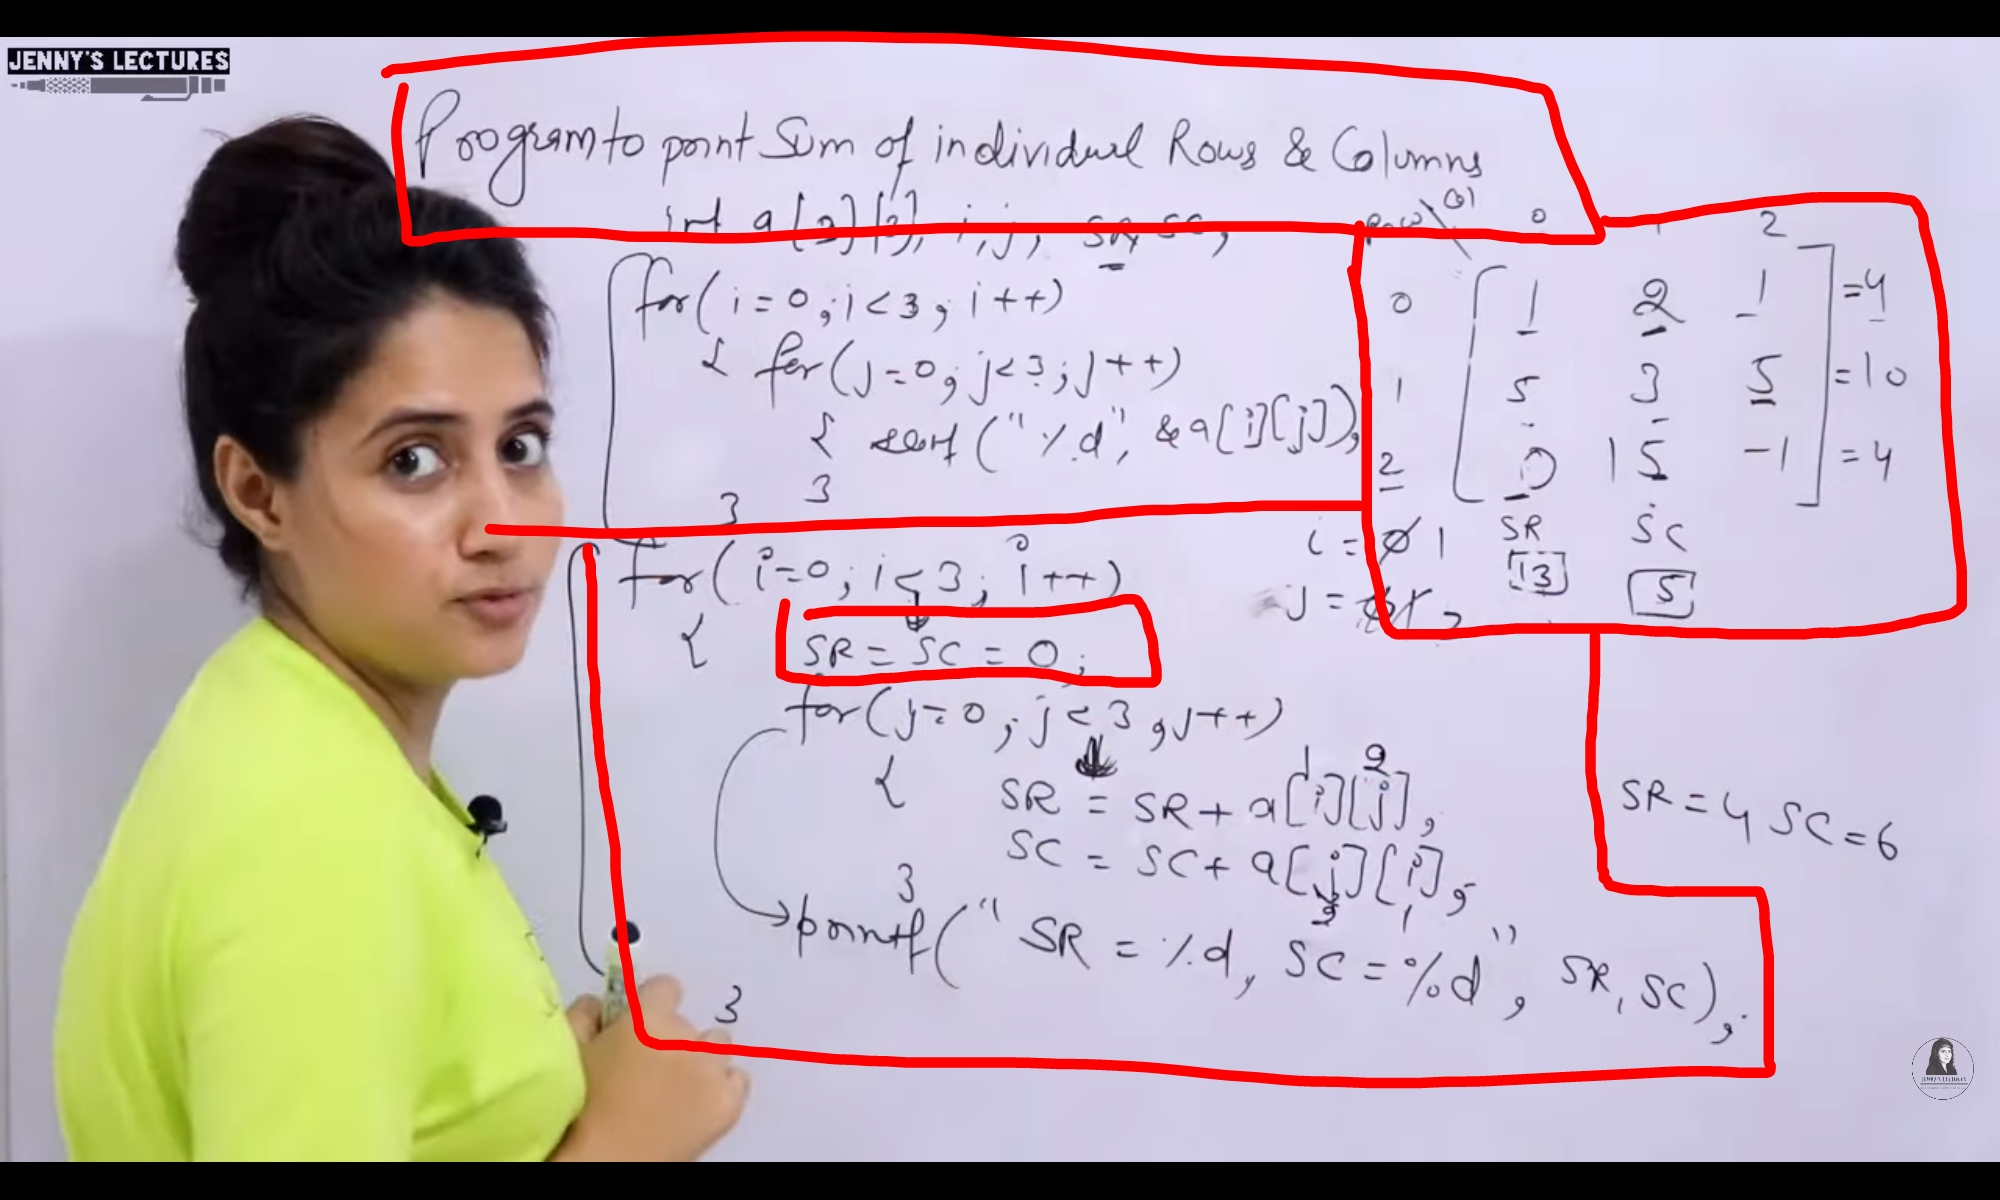 JENNY'S LECTURES
Program to print Sum of individual Rows & Columns
int a[3][3], i, j, SR, SC;
for(i=0; i<3; i++)
{ for(j=0; j<3; j++)
{ scanf("%d", &a[i][j]);
}
}
for(i=0; i<3; i++)
{
SR = SC = 0;
for(j=0; j<3; j++)
{ SR = SR + a[i][j];
SC = SC + a[j][i];
}
printf("SR = %d, SC = %d", SR, SC);
}
0 1 2
0 1 2 1 = 4
1 5 3 5 = 10
2 0 5 -1 = 4
i = 0 1
j =
SR SC
13 5
SR = 4 SC = 6